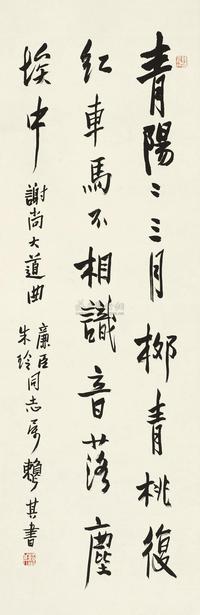 青陽〻三月柳青桃復
紅車馬不相識音落塵
埃中 謝尚大道曲
廉臣
朱玲同志屬 賴其書